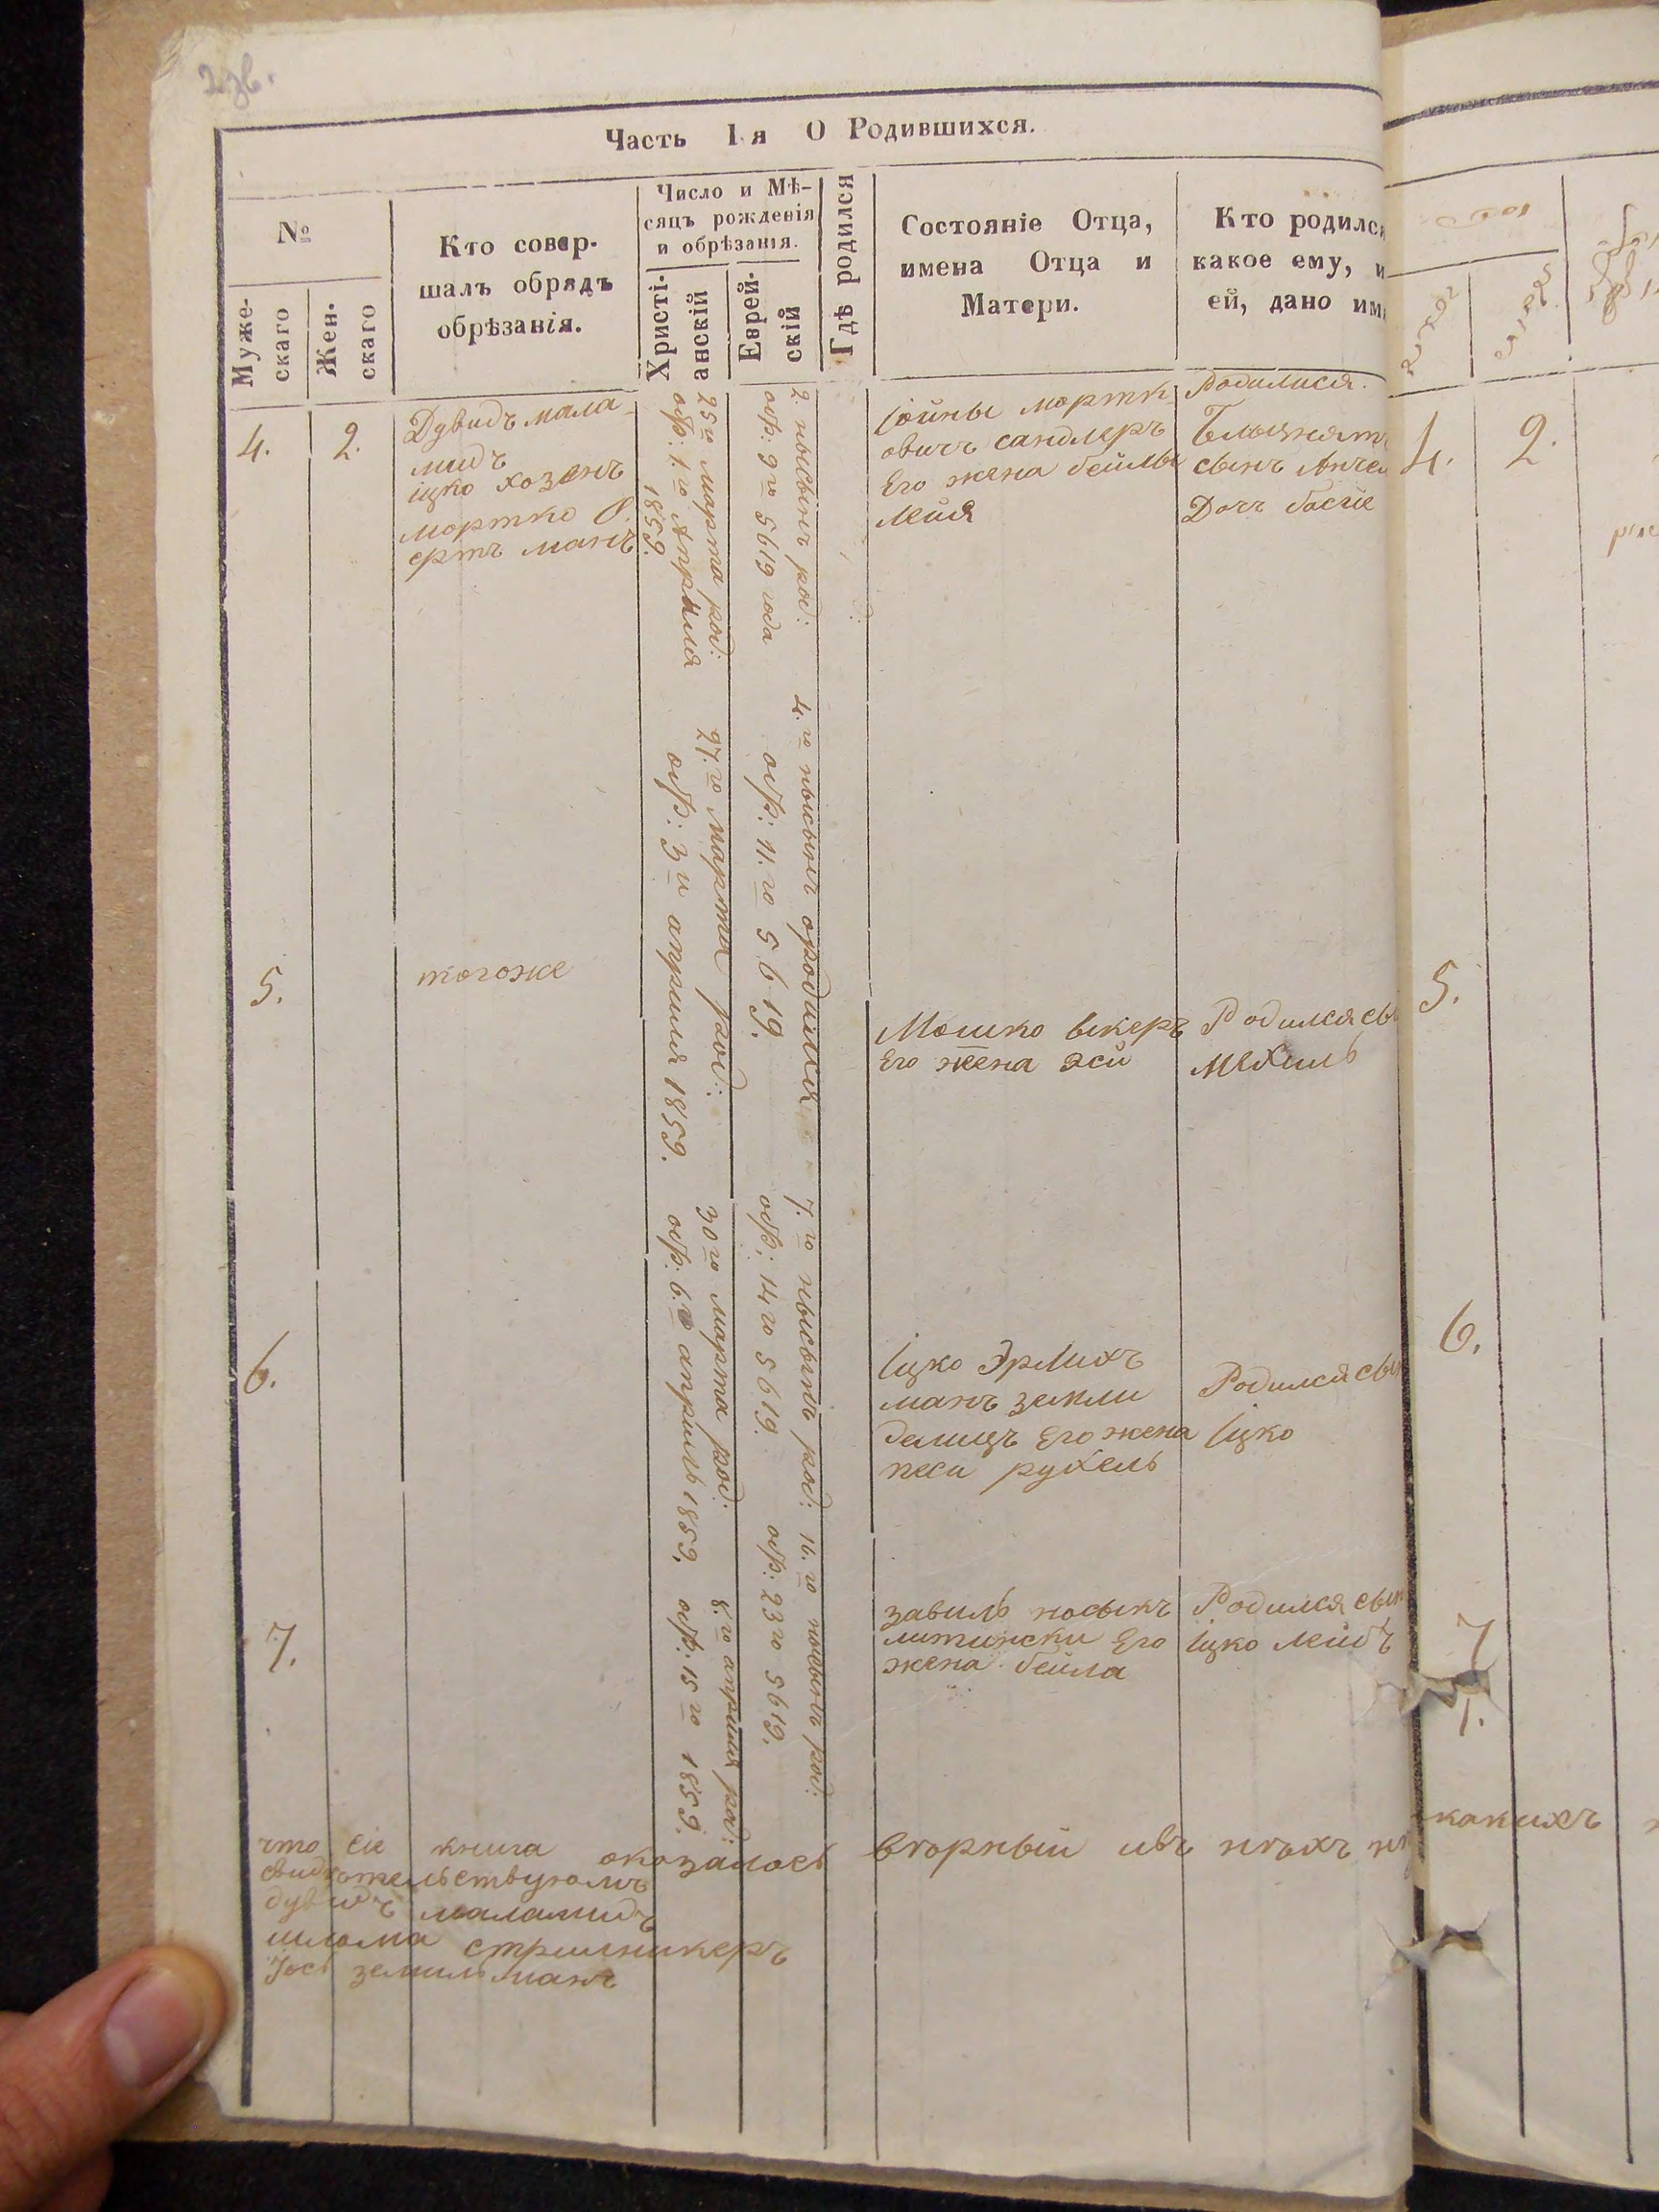 2 зв.
Часть I-я О Родившихся.
№
Муже-
скаго
Жен-
скаго
Кто совер-
шалъ обрядъ
обрѣзанія.
Число и Мѣ-
сяцъ рожденія
и обрѣзанія.
Христі-
анскій
Еврей-
скій
Гдѣ родился
Состояніе Отца,
имена Отца и
Матери.
Кто родился
какое ему, и
ей, дано им
4.
2.
Дувидъ мала-
мидъ
іцко хозенъ
мортко
ертъ манъ
25го марта род:
обр: 1.го Априля
1859.
2. нысынъ род:
обр: 9го 5619 года
Іойны мортк
овичъ сандлеръ
Его жена бейлы
лейя
Родилися.
сынъ Анчел
Доч басие
4.
2.
5.
тогоже
27.го марта род:
обр: 3го априля 1859.
4.го нысынъ ородился
обр: 11.го 5619.
Мошко векеръ
Его жена эси
Родился сы
Мехиль
5.
6.
30го марта род:
обр: 6.го априль 1859.
7.го нысынъ род:
обр: 14го 5619.
Іцко Эрлихъ
манъ земли
делицъ Его жена
песи рухель
Родился сын
Іцко
6.
7.
8.го априля род:
обр: 15го 1859.
16.го нысынъ род:
обр: 23го 5619.
завиль носынъ
литински Его
жена бейла
Родился сын
Іцко лейбъ
7
что сіе книга оказалось
какихъ
свидѣтельствуомъ
дувидъ маламидъ
шлома стрилникеръ
Іось земильманъ